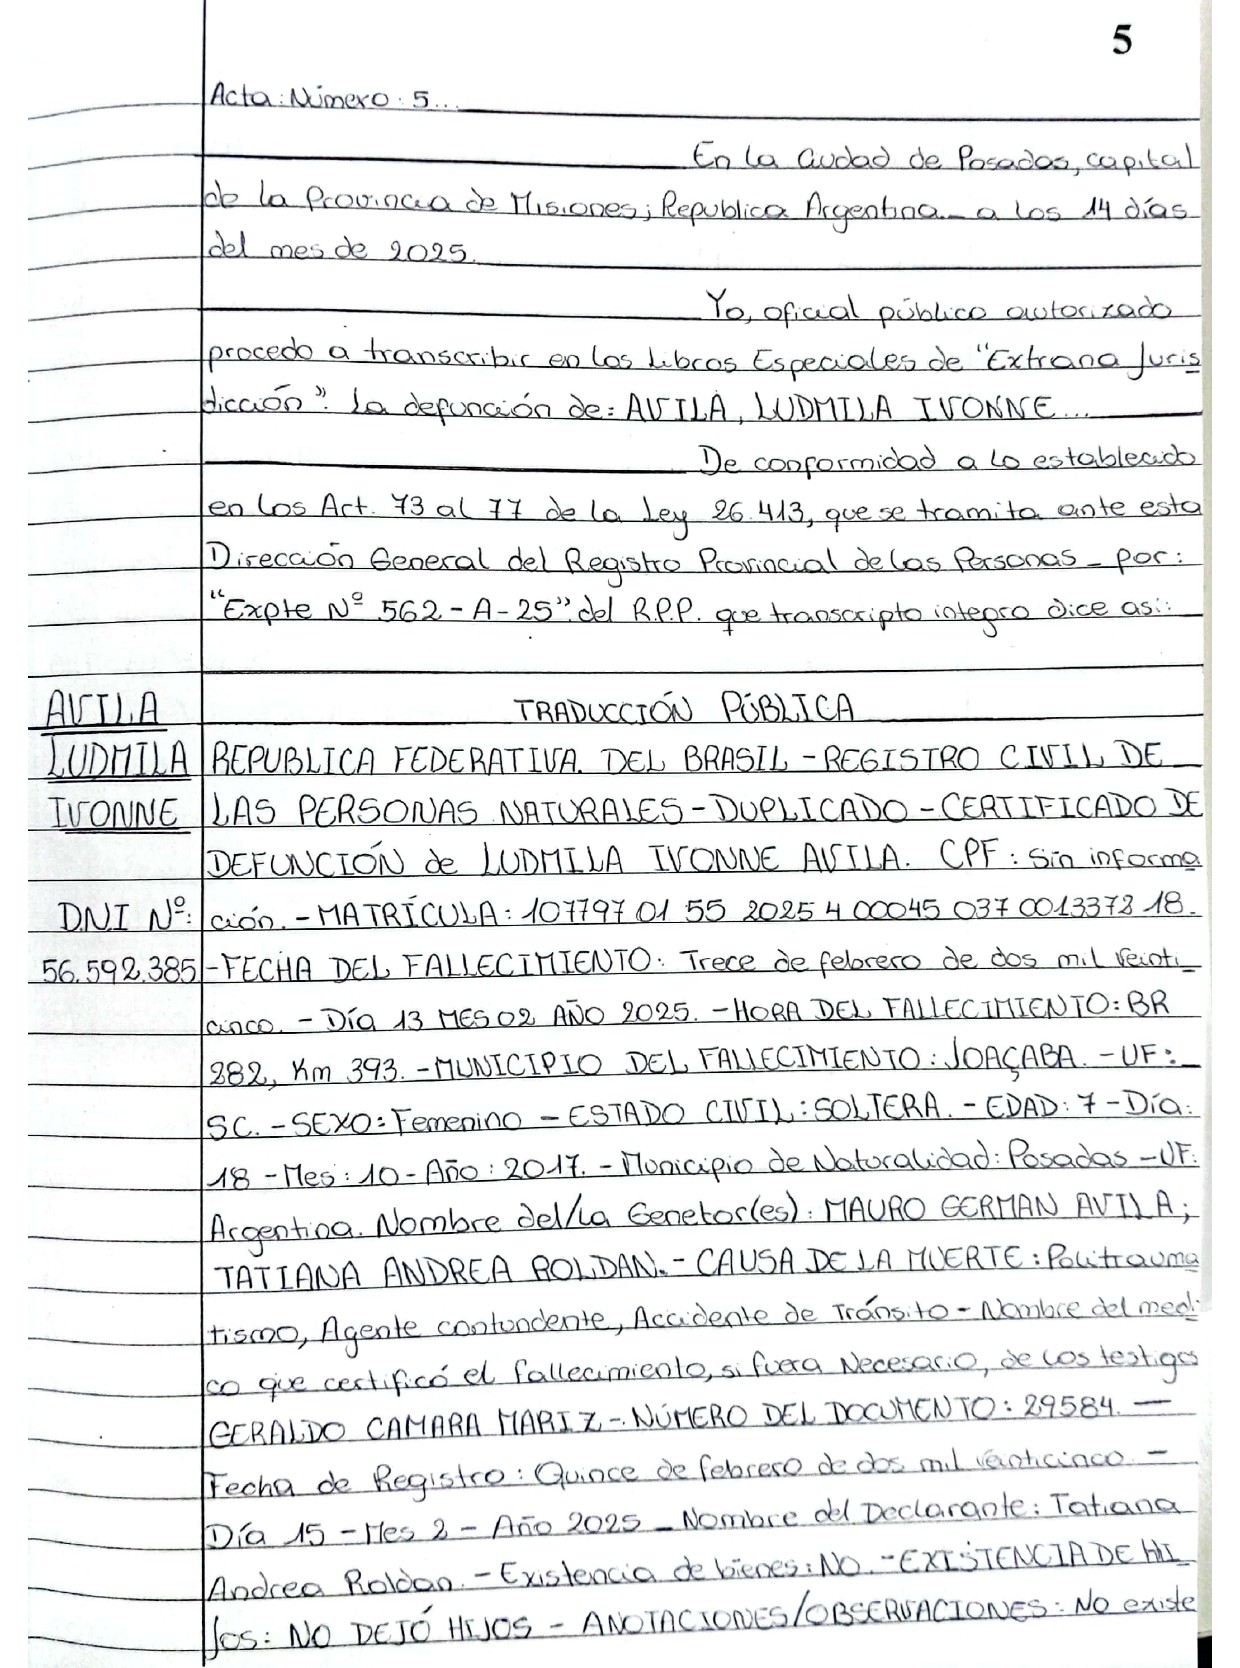 5
Acta: Número: 5...
En la ciudad de Posadas, capital
de la Provincia de Misiones; Republica Argentina - a los 14 días
del mes de 2025.
Yo, oficial público autorizado
procedo a transcribir en los Libros Especiales de "Extrana Juris
dicción". La defunción de: AVILA, LUDMILA IVONNE...
De conformidad a lo establecido
en los Art. 73 al 77 de la Ley 26.413, que se tramita ante esta
Dirección General del Registro Provincial de las Personas - por:
"Expte Nº 562-A-25" del R.P.P. que transcripto integro dice asi:
AVILA
LUDMILA
IVONNE
TRADUCCIÓN PÚBLICA
REPUBLICA FEDERATIVA DEL BRASIL - REGISTRO CIVIL DE
LAS PERSONAS NATURALES - DUPLICADO - CERTIFICADO DE
DEFUNCIÓN de LUDMILA IVONNE AVILA. CPF: Sin informa
DNI Nº:
56.592.385
ción. - MATRÍCULA: 107797 01 55 2025 4 00045 037 0013372 18.
- FECHA DEL FALLECIMIENTO: Trece de febrero de dos mil veinti
cinco. - Día 13 MES 02 AÑO 2025. - HORA DEL FALLECIMIENTO: BR
282, Km 393. - MUNICIPIO DEL FALLECIMIENTO: JOAÇABA. - UF:
SC. - SEXO: Femenino - ESTADO CIVIL: SOLTERA. - EDAD: 7 - Día:
18 - Mes: 10 - Año: 2017. - Municipio de Naturalidad: Posadas - UF:
Argentina. Nombre del/la Genetor(es): MAURO GERMAN AVILA;
TATIANA ANDREA ROLDAN. - CAUSA DE LA MUERTE: Politrauma
tismo, Agente contundente, Accidente de Tránsito - Nombre del medi
co que certificó el fallecimiento, si fuera Necesario, de los testigos
GERALDO CAMARA MARIZ - NÚMERO DEL DOCUMENTO: 29584. -
Fecha de Registro: Quince de febrero de dos mil veinticinco. -
Día 15 - Mes 2 - Año 2025 - Nombre del Declarante: Tatiana
Andrea Roldan. - Existencia de bienes: NO. - EXISTENCIA DE HI
jos: NO DEJÓ HIJOS - ANOTACIONES/OBSERVACIONES: No existe